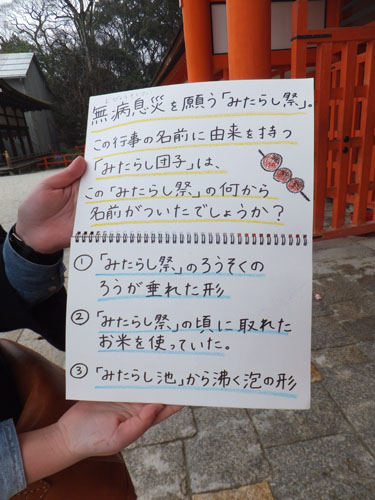 無病息災を願う「みたらし祭」。
この行事の名前に由来を持つ
「みたらし団子」は、
この「みたらし祭」の何から
名前がついたでしょうか？
①「みたらし祭」のろうそくの
ろうが垂れた形
②「みたらし祭」の頃に取れた
お米を使っていた。
③「みたらし池」から沸く泡の形